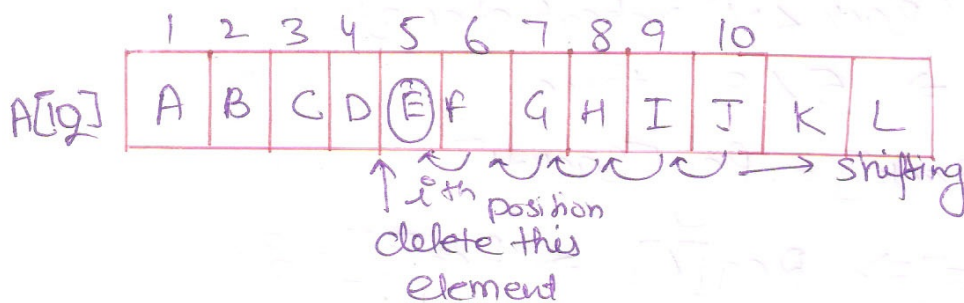 1 2 3 4 5 6 7 8 9 10
A[12] A B C D E F G H I J K L
shifting
ith position
delete this
element